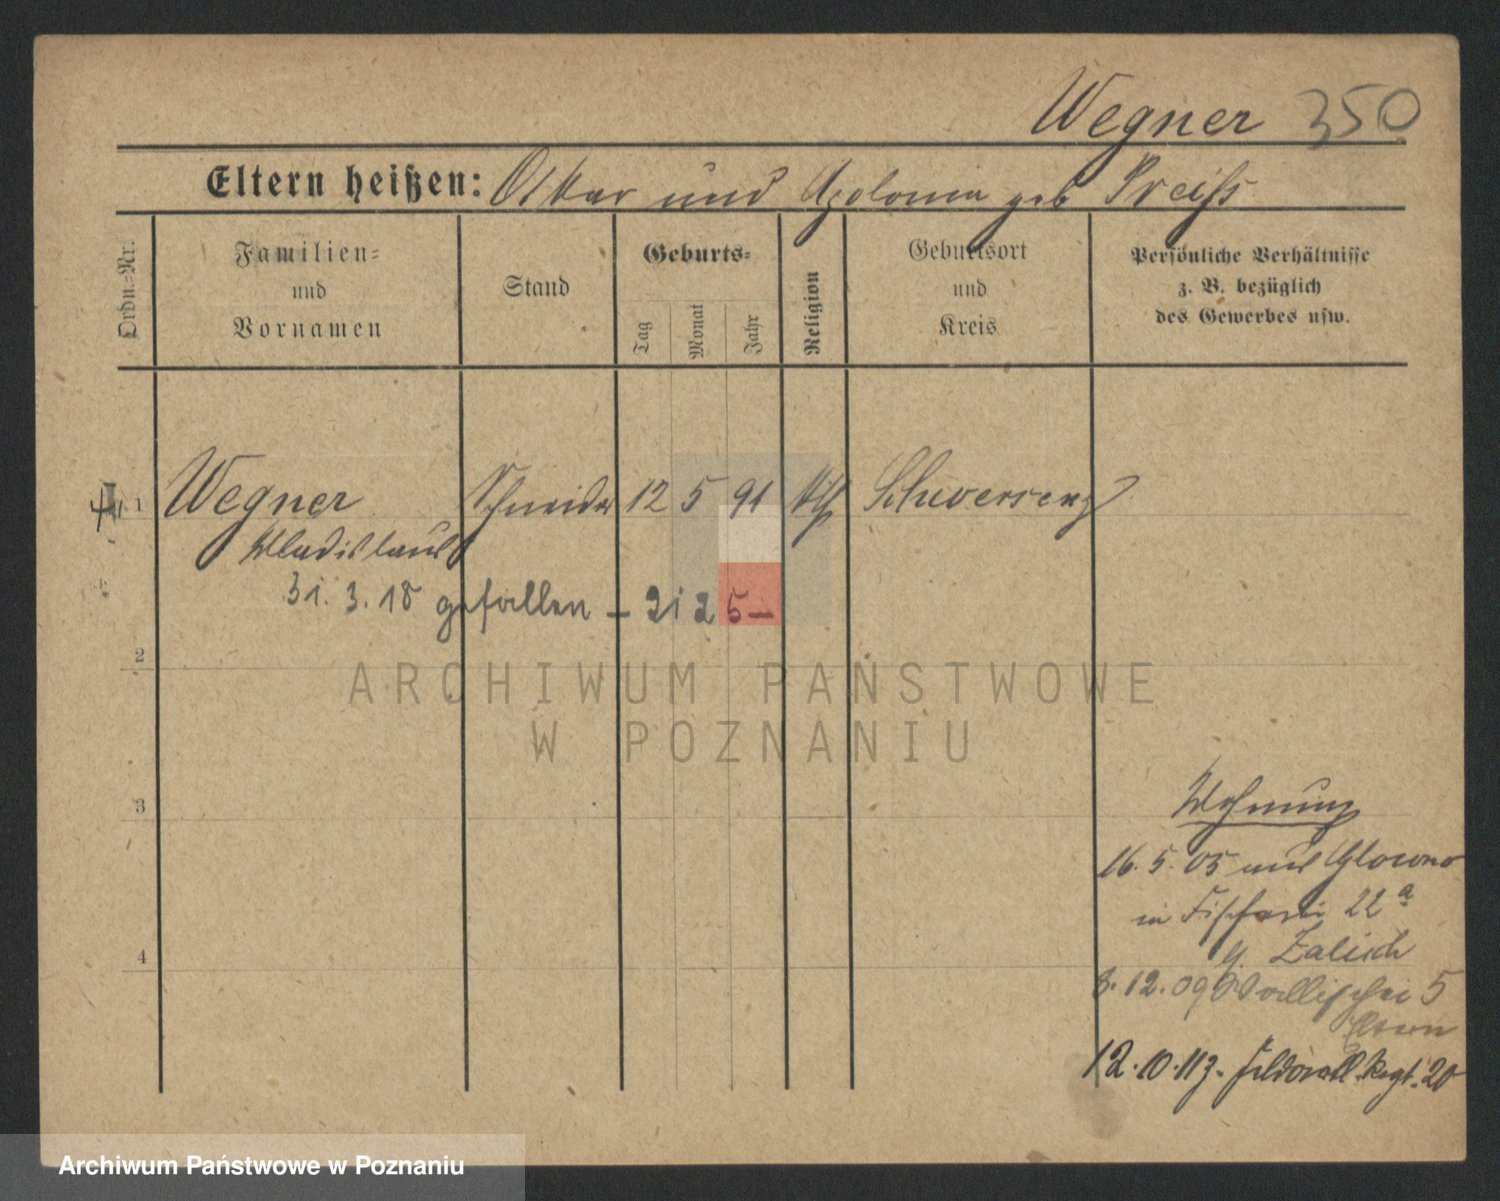 Wegner 350
Eltern heißen: Ottkar und Apolonia geb Preiss
Ordn.=Nr.
Familien=
und
Vornamen
Stand
Geburts=
Tag
Monat
Jahr
Religion
Geburtsort
und
Kreis
Persönliche Verhältnisse
z. B. bezüglich
des Gewerbes usw.
1 Wegner Schneider 12 5 91 kth Schwersenz
Wladislaus
31. 3. 18 gefallen – 21 2 5 –
2
ARCHIWUM PAŃSTWOWE
W POZNANIU
3
Wohnung
16. 5. 05 aus Glowno
in Fischerei 22a
b. Zalisch
4
8. 12. 09 Wallischei 5
Eltern
12. 10. 113. Feldartll. Regt. 20
Archiwum Państwowe w Poznaniu